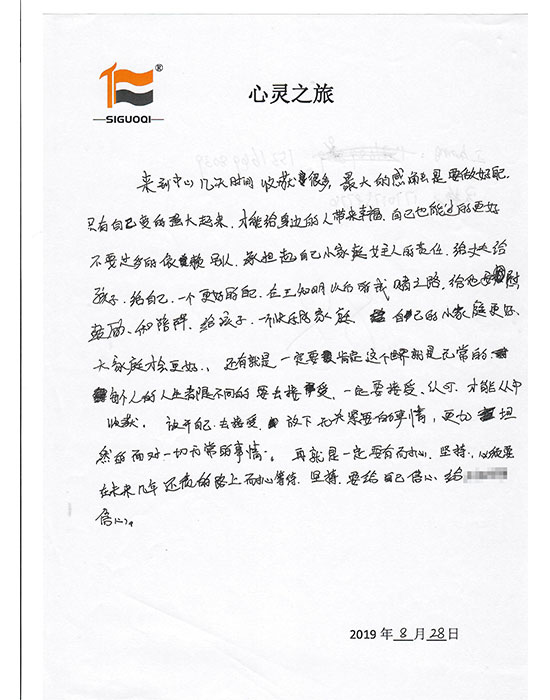 ®
SIGUOQI
心灵之旅
来到中心几次时间 收获很多，最大的感触是要做好自己
只有自己变的强大起来，才能给身边的人带来幸福，自己也能过的更好
不要过多的依赖别人，承担起自己小家庭女主人的责任，给丈夫给
孩子，给自己，一个更好的自己，在王知明以后的路，给他
鼓励、和陪伴，给孩子，一个快乐的家庭，自己的小家庭更好，
大家庭才会更好，还有就是一定要肯定这个世界就是无常的
每个人的人生都是不同的 要去接受，一定要接受、认可，才能从中
收获，放开自己 去接受，放下 无关紧要的事情，更加 坦
然的面对一切无常的事情。再就是一定要有耐心，坚持，
在未来几年 还债的路上 耐心等待，坚持，要给自己信心，给
信心。
2019 年 8 月 28 日